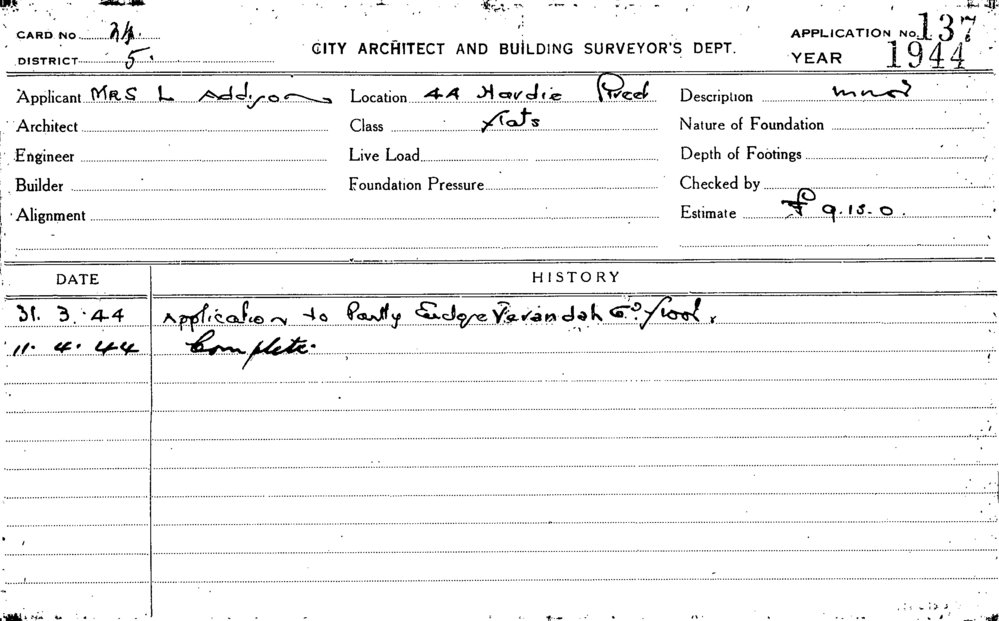 CARD No 24.
APPLICATION No. 137
DISTRICT 5.
CITY ARCHITECT AND BUILDING SURVEYOR'S DEPT.
YEAR 1944
Applicant MRS L Addison Location 44 Hardie Description minor
Architect Class flats Nature of Foundation
Engineer Live Load Depth of Footings
Builder Foundation Pressure Checked by
Alignment Estimate £ 9.15.0.
DATE HISTORY
31. 3. 44 Application to Partly Verandah floor.
11. 4. 44 Complete.